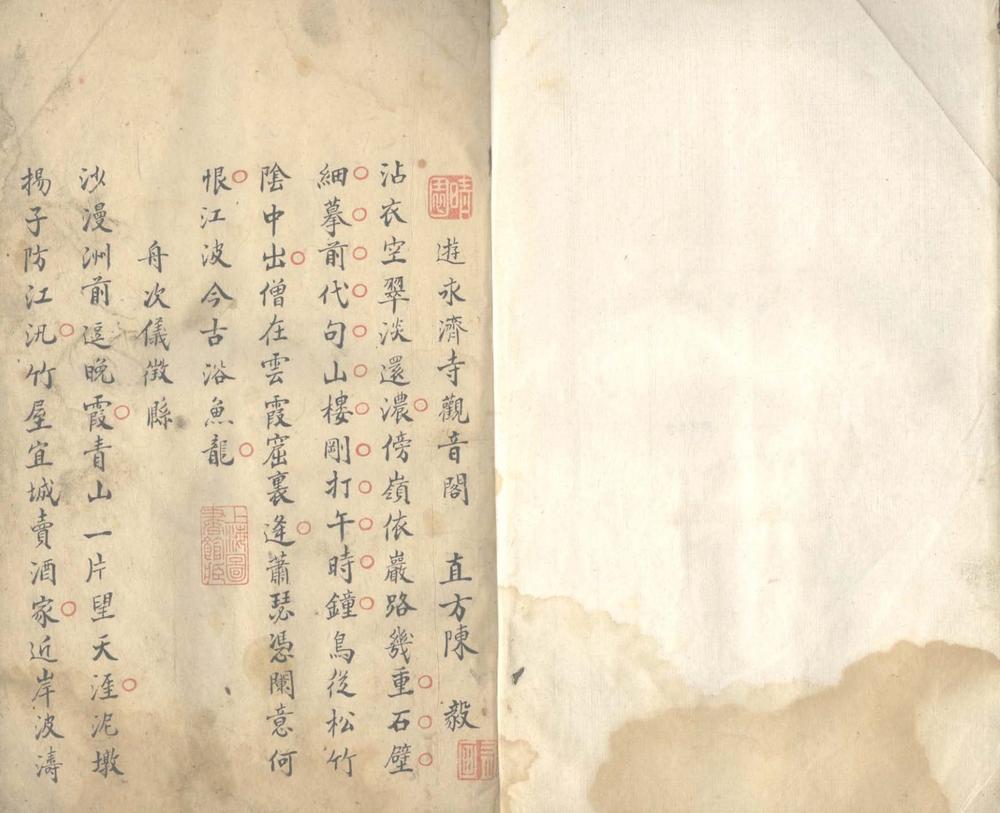 遊永濟寺觀音閣 直方陳 毅
沾衣空翠淡還濃傍嶺依巖路幾重石壁
細摹前代句山樓剛打午時鐘鳥從松竹
陰中出僧在雲霞窟裏逢蕭瑟憑闌意何
恨江波今古浴魚龍
上海圖書館藏
舟次儀徵縣
沙漫洲前逗晚霞青山一片望天涯泥墩
揚子防江汛竹屋宜城賣酒家近岸波濤